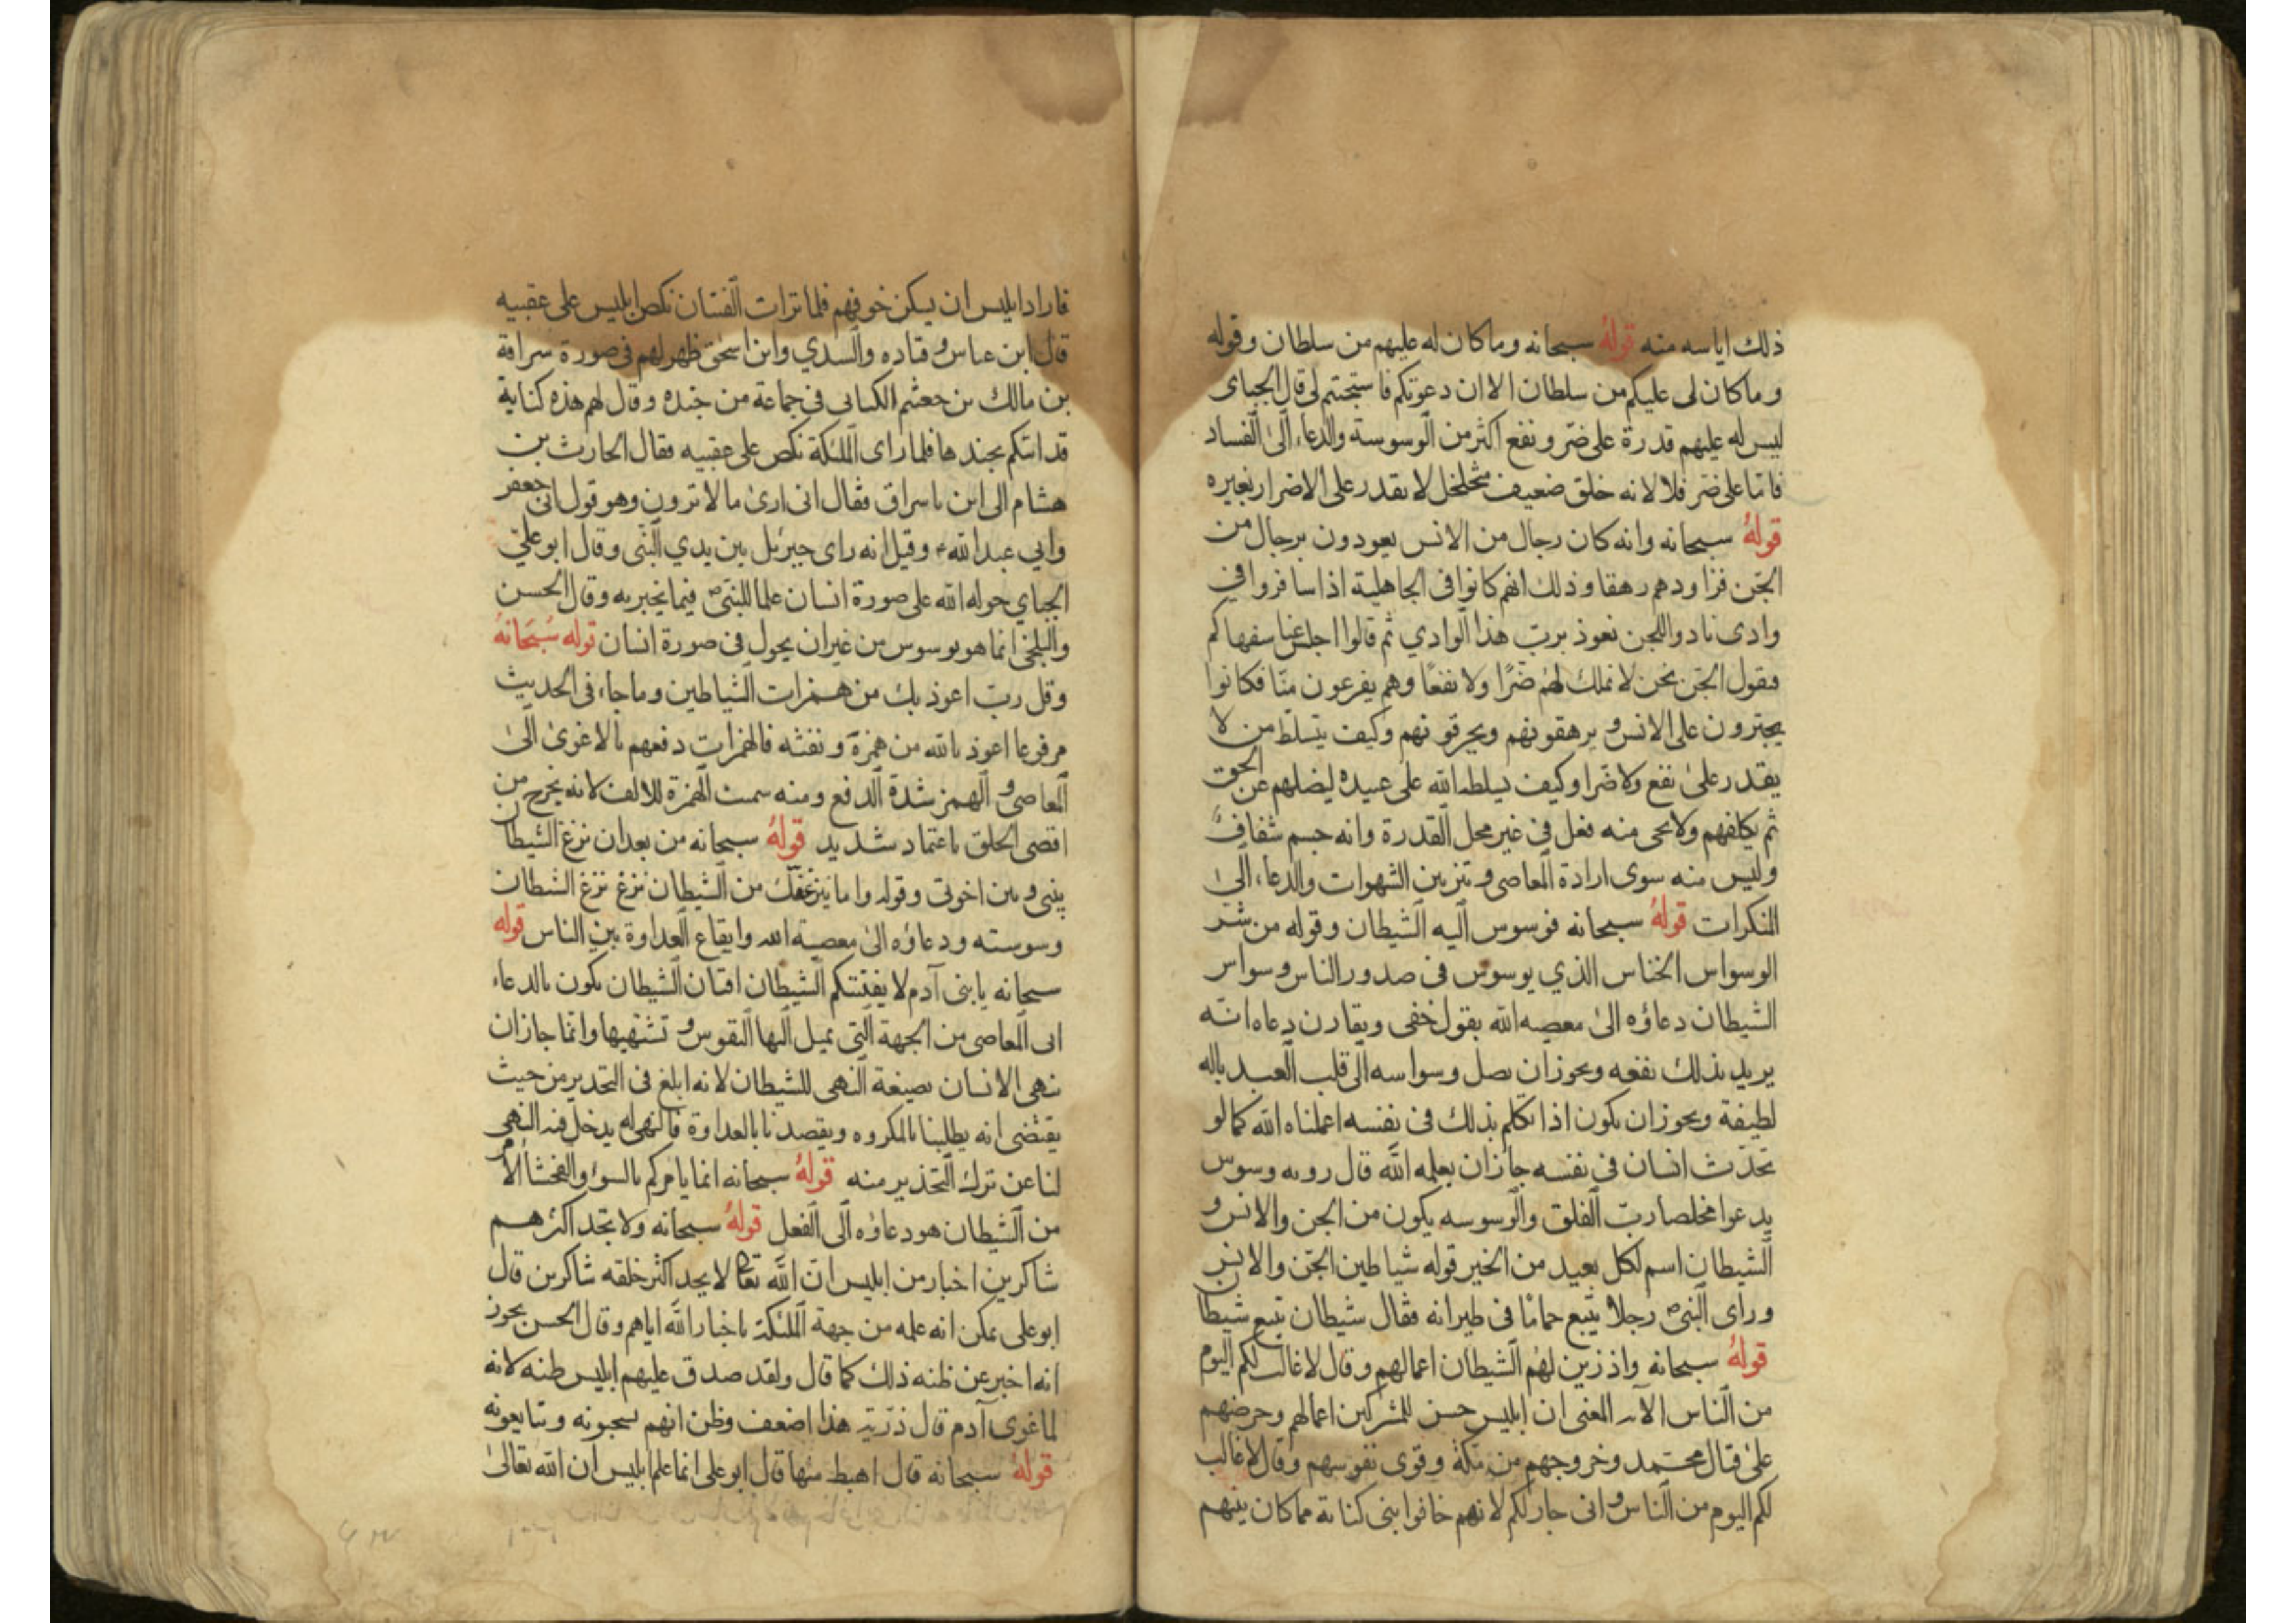 ذلك اياسه منه قوله سبحانه وما كان له عليهم من سلطان وقوله
وما كان لى عليكم من سلطان الا ان دعوتكم فاستجبتم لى قال الجباى
ليس له عليهم قدرة على ضر ونفع اكثر من الوسوسة والدعاء الى الفساد
فاما على ضر فلا لانه خلق ضعيف متخلخل لا يقدر على الاضرار بغيره
قوله سبحانه وانه كان رجال من الانس يعوذون برجال من
الجن فزادوهم رهقا وذلك انهم كانوا فى الجاهلية اذا سافروا فى
وادى نادوا للجن نعوذ برب هذا الوادي ثم قالوا اجلس عنا سفهاكم
فيقول الجن نحن لا نملك لهم ضرا ولا نفعا وهم يفزعون منا فكانوا
يجترون على الانس و يرهقونهم ويحرقونهم وكيف يتسلط من لا
يقدر على نفع ولا ضرا وكيف يسلطه الله على عبيده ليضلهم عن الحق
ثم يكلفهم ولا يحى منه فعل فى غير محل القدرة وانه جسم شفاف
وليس منه سوى ارادة المعاصى و تزيين الشهوات والدعاء الى
النكرات قوله سبحانه فوسوس اليه الشيطان وقوله من شر
الوسواس الخناس الذي يوسوس فى صدور الناس وسواس
الشيطان دعاؤه الى معصيه الله بقول خفى ويقارن دعاه انه
يريد بذلك نفعه ويحوز ان يصل وسواسه الى قلب العبد باله
لطيفة ويجوز ان يكون اذا تكلم بذلك فى نفسه اعلمناه الله كما لو
تحدث انسان فى نفسه جازان يعلمه الله قال روبه وسوس
يدعوا مخلصا رب الفلق والوسوسه يكون من الجن والانس و
الشيطان اسم لكل بعيد من الخير قوله شياطين الجن والانس
وراى النبى ص رجلا يتبع حماما فى طيرانه فقال شيطان يتبع شيطان
قوله سبحانه واذ زين لهم الشيطان اعمالهم وقال لا غالب لكم اليوم
من الناس الآيه المعنى ان ابليس حسن للمشركين اعمالهم وحرضهم
على قتال محمد وخروجهم من مكة وقوى نفوسهم وقال لا غالب
لكم اليوم من الناس و انى جار لكم لانهم خافوا بنى كنانة مما كان بينهم
فاراد ابليس ان يسكن خوفهم فلما تراات الفئتان نكص ابليس على عقبيه
قال ابن عباس و قتاده والسدي وابن اسحق ظهر لهم فى صورة سراقة
بن مالك بن جعثم الكنانى فى جماعة من جنده وقال لهم هذه كنانة
قد اتتكم بجندها فلما راى الملئكة نكص على عقبيه فقال الحارث بن
هشام الى اين يا سراق فقال انى ارى ما لا ترون وهو قول ابى جعفر
وابي عبد الله ع وقيل انه راى جبرئيل بين يدي النبى وقال ابو علي
الجباي حوله الله على صورة انسان علما للنبى ص فيما يخبر به وقال الحسن
والبلخى انما هو يوسوس من غير ان يحول فى صورة انسان قوله سبحانه
وقل رب اعوذ بك من همزات الشياطين وما جاء فى الحديث
مرفوعا اعوذ بالله من همزة و نفثه فالهمزات دفعهم بالاغوى الى
المعاصى و الهمز شدة الدفع ومنه سمت الهمزة للالف لانه يخرج من
اقصى الحلق باعتماد شديد قوله سبحانه من بعد ان نزغ الشيطان
بينى و بين اخوتى وقوله واما ينزغنك من الشيطان نزغ نزغ الشطان
وسوسته ودعاؤه الى معصية الله وايقاع العداوة بين الناس قوله
سبحانه يا بنى آدم لا يفتننكم الشيطان افتان الشيطان يكون بالدعاء
الى المعاصى من الجهة التى يميل اليها النفوس و تشتهيها وانما جازان
نهى الانسان بصيغة النهى للشيطان لانه ابلغ فى التحذير من حيث
يقتضى انه يطلبنا بالمكروه ويقصدنا بالعداوة فالنهى له يدخل فيه النهى
لنا عن ترك التحذير منه قوله سبحانه انما يامركم بالسوء والفحشا الامر
من الشيطان هو دعاؤه الى الفعل قوله سبحانه ولا تجد اكثرهم
شاكرين اخبار من ابليس ان الله تعالى لا يجد اكثر خلقه شاكرين قال
ابو على يمكن انه علمه من جهة الملئكة باخبار الله اياهم وقال الحسن يجوز
انه اخبر عن ظنه ذلك كما قال ولقد صدق عليهم ابليس ظنه لانه
لما غوى آدم قال ذريته هذا اضعف وظن انهم يسجبونه ويتابعونه
قوله سبحانه قال اهبط منها قال ابو على انما علم ابليس ان الله تعالى